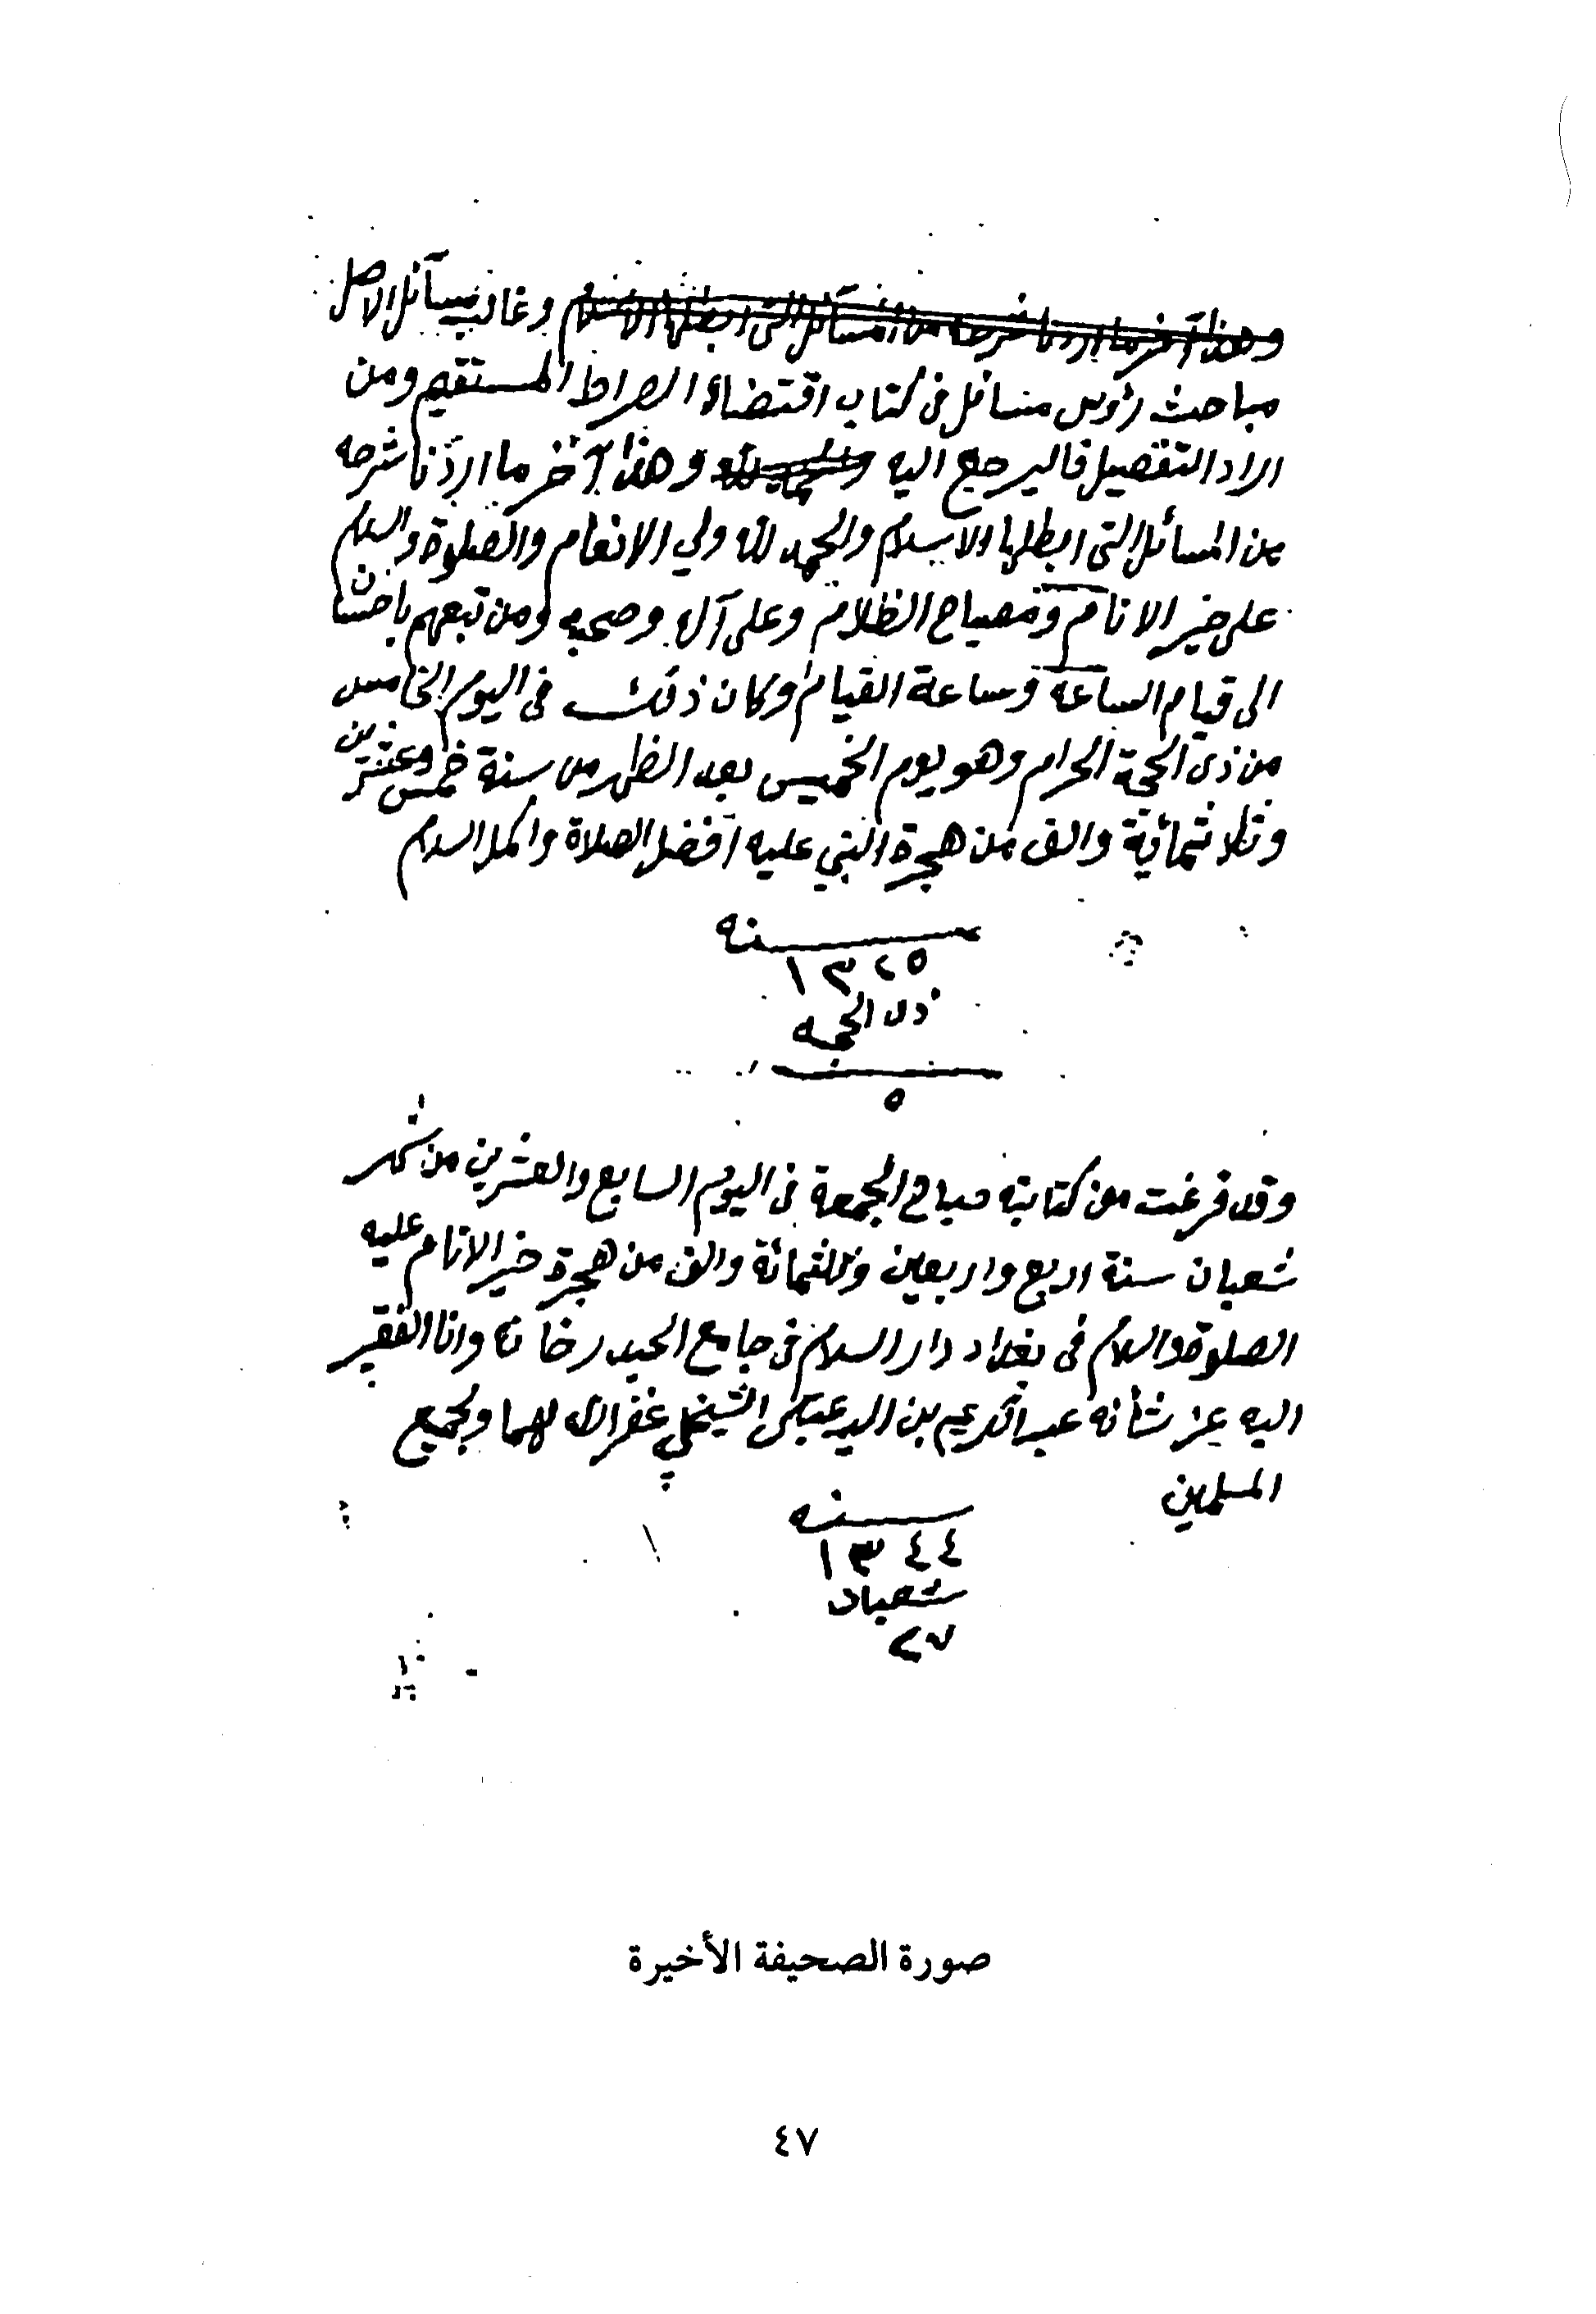 وهذا آخر ما اردنا شرحه من المسائل التى ابطلها الاسلام وغالب مسآئل الاصل
مباحث رؤس مسائل فى كتاب اقتضاء الصراط المستقيم ومن
اراد التفصيل فاليرجع اليه والحمد لله وهذا آخر ما اردنا شرحه
من المسائل التى ابطلها الاسلام والحمد لله ولي الانعام والصلوة والسلام
على خير الانام ومصباح الظلام وعلى آله وصحبه ومن تبعهم باحسان
الى قيام الساعة وساعة القيام وكان ذلك فى اليوم الخامس
من ذى الحجة الحرام وهو يوم الخميس بعد الظهر من سنة خمس وعشرين
وثلاثمائة والف من هجرة النبي عليه افضل الصلاة واكمل السلام
سنه
١٣٢٥
ذى الحجه
٥
وقد فرغت من كتابته صباح الجمعة فى اليوم السابع والعشرين من شهر
شعبان سنة اربع واربعين وثلثمائة والف من هجرة خير الانام عليه
الصلوة والسلام فى بغداد دار السلام فى جامع الحيدرخانه وانا الفقير
اليه عز شأنه عبد الكريم بن السيد عباس الشيخلي غفر الله لهما ولجميع
المسلمين
سنه
١٣٤٤
شعبان
٢٧
صورة الصحيفة الأخيرة
٤٧